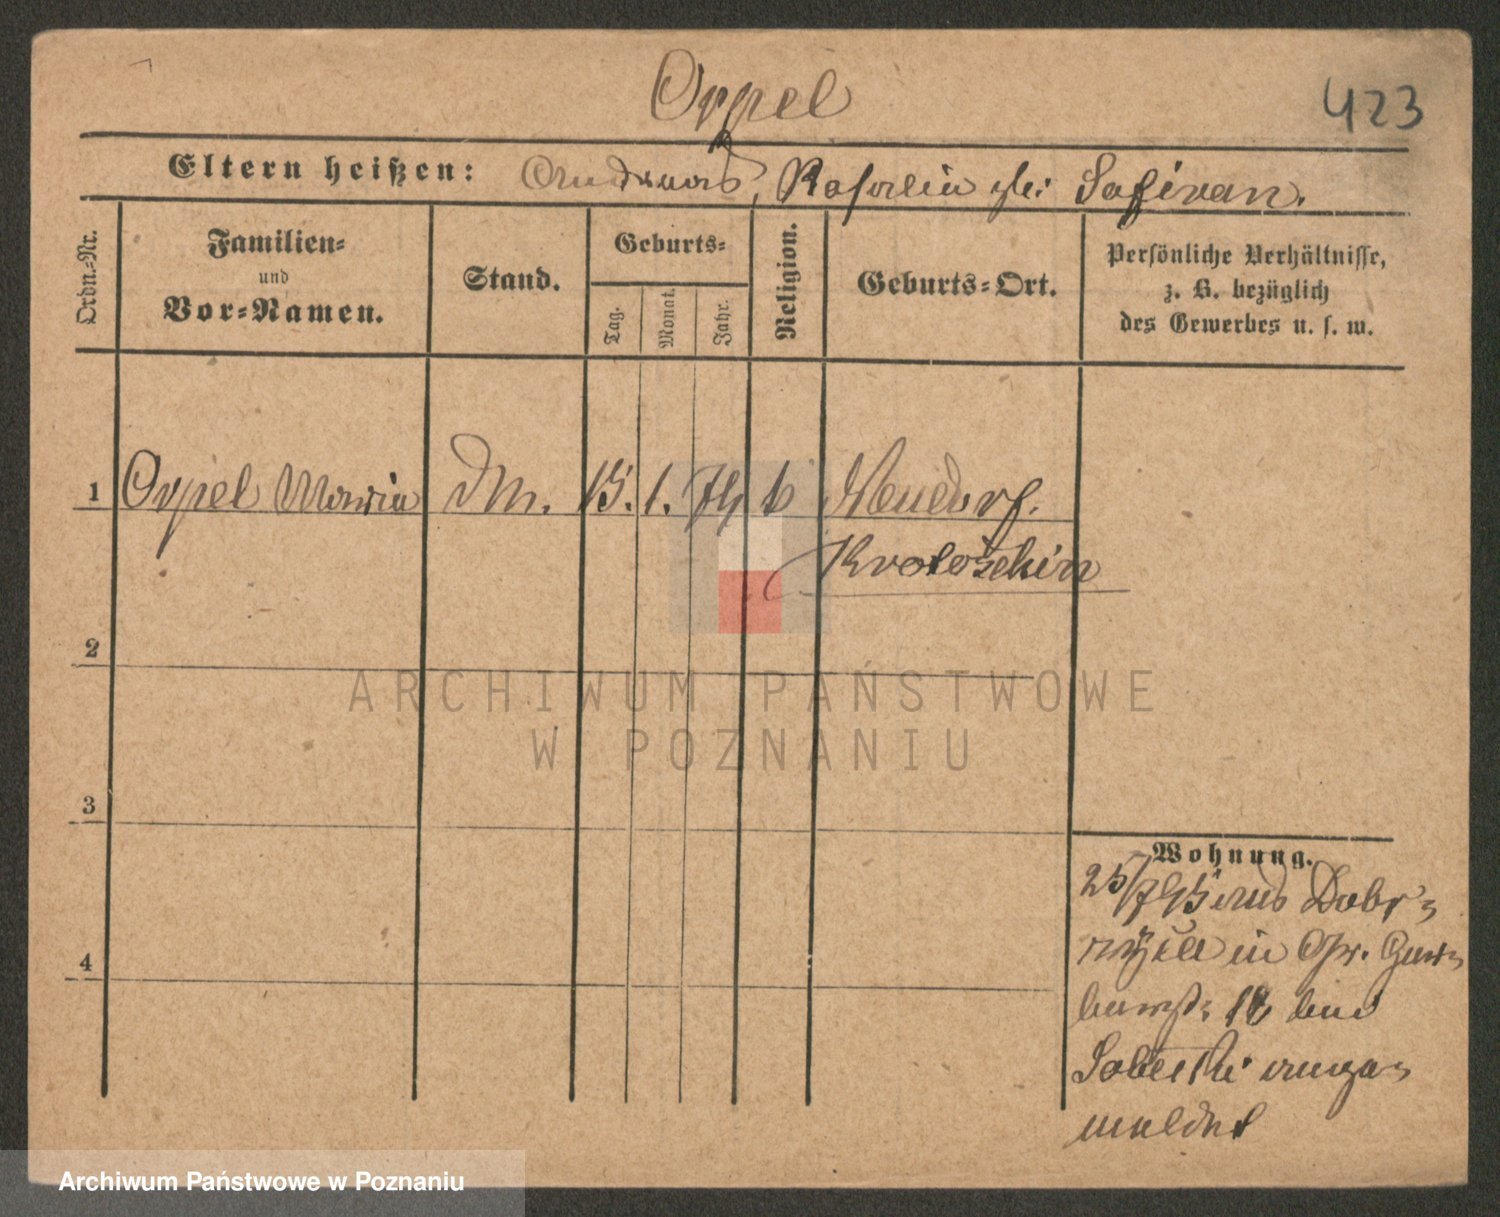 Oppel
423
Eltern heißen: Andreas, Rosalie
Ordn.-Nr.
Familien-
und
Vor-Namen.
Stand.
Geburts-
Tag.
Monat.
Jahr.
Religion.
Geburts-Ort.
Persönliche Verhältnisse,
z. B. bezüglich
des Gewerbes u. s. w.
1 Oppel Maria DM. 15. 1. 74 k Neudorf.
Krotoschin
2
3
4
Wohnung.
25/7 95 aus Dobr-
in Gr. Ger-
berst: 18 bei
Sobeski ange-
meldet
ARCHIWUM PAŃSTWOWE
W POZNANIU
Archiwum Państwowe w Poznaniu